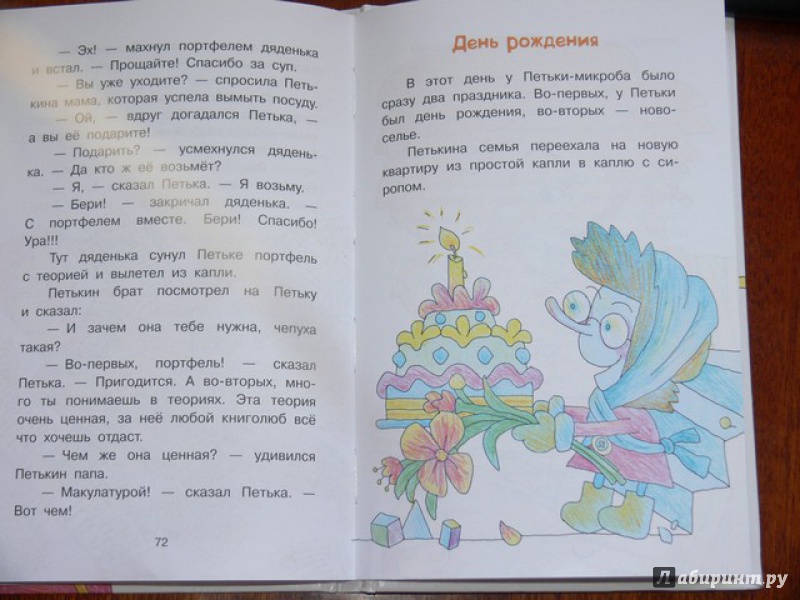 — Эх! — махнул портфелем дяденька
и встал. — Прощайте! Спасибо за суп.
— Вы уже уходите? — спросила Петь-
кина мама, которая успела вымыть посуду.
— Ой, — вдруг догадался Петька, —
а вы её подарите!
— Подарить? — усмехнулся дядень-
ка. — Да кто ж её возьмёт?
— Я, — сказал Петька. — Я возьму.
— Бери! — закричал дяденька. —
С портфелем вместе. Бери! Спасибо!
Ура!!!
Тут дяденька сунул Петьке портфель
с теорией и вылетел из капли.
Петькин брат посмотрел на Петьку
и сказал:
— И зачем она тебе нужна, чепуха
такая?
— Во-первых, портфель! — сказал
Петька. — Пригодится. А во-вторых, мно-
го ты понимаешь в теориях. Эта теория
очень ценная, за неё любой книголюб всё
что хочешь отдаст.
— Чем же она ценная? — удивился
Петькин папа.
— Макулатурой! — сказал Петька. —
Вот чем!
72
День рождения
В этот день у Петьки-микроба было
сразу два праздника. Во-первых, у Петьки
был день рождения, во-вторых — ново-
селье.
Петькина семья переехала на новую
квартиру из простой капли в каплю с си-
ропом.
Лабиринт.ру